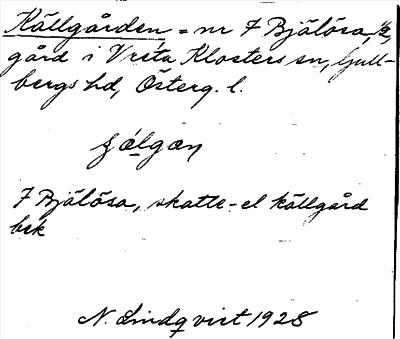 Källgården = nr 7 Bjälösa, ½
gård i Vreta Klosters sn, Gull-
bergs hd, Österg. l.
7 Bjälösa, skatte- el källgård
bek
N. Lindqvist 1928